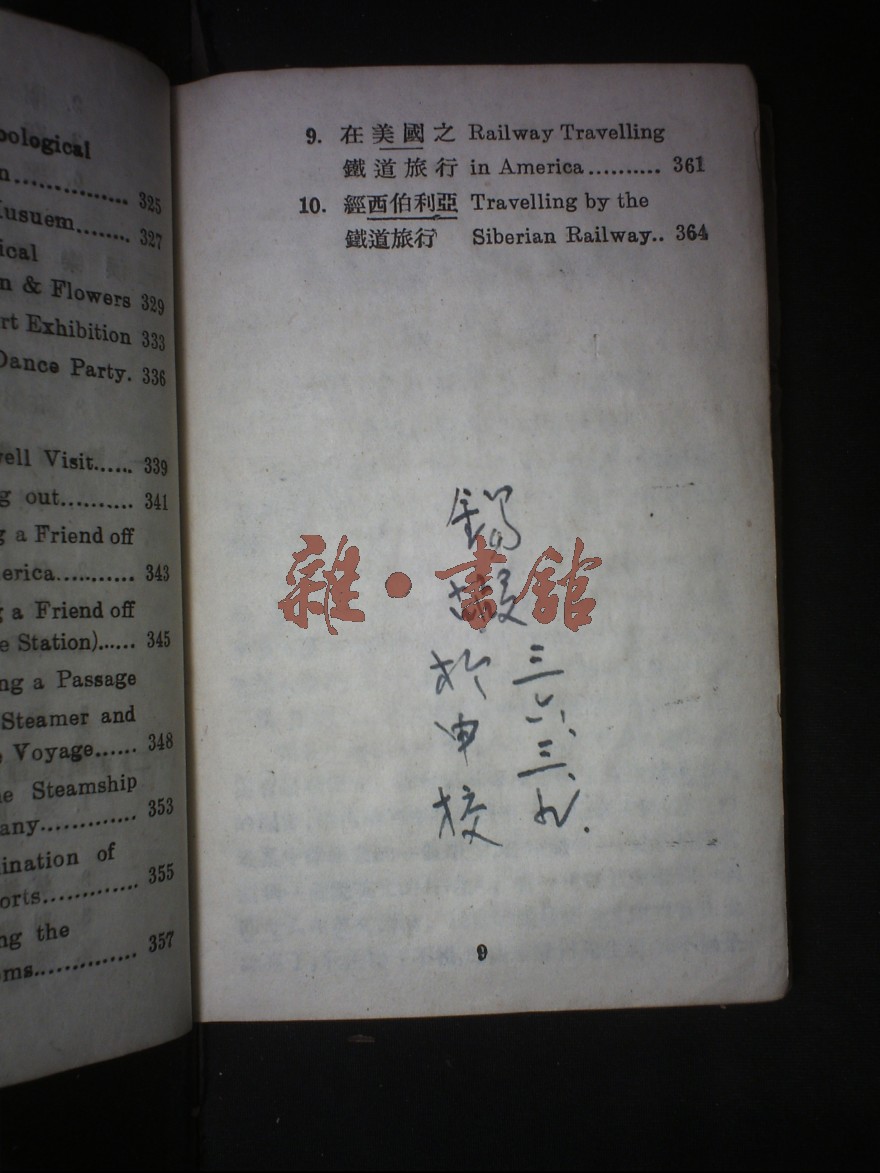 oological
n............... 325
Kusuem........ 327
ical
n & Flowers 329
rt Exhibition 333
Dance Party. 336
rell Visit...... 339
g out.......... 341
g a Friend off
erica........... 343
g a Friend off
e Station)...... 345
ng a Passage
Steamer and
Voyage...... 348
e Steamship
any............. 353
ination of
orts............. 355
ng the
oms.............. 357
9. 在美國之 Railway Travelling
鐵道旅行 in America.......... 361
10. 經西伯利亞 Travelling by the
鐵道旅行 Siberian Railway.. 364
雜·書館
於申校
三六.三.九.
9